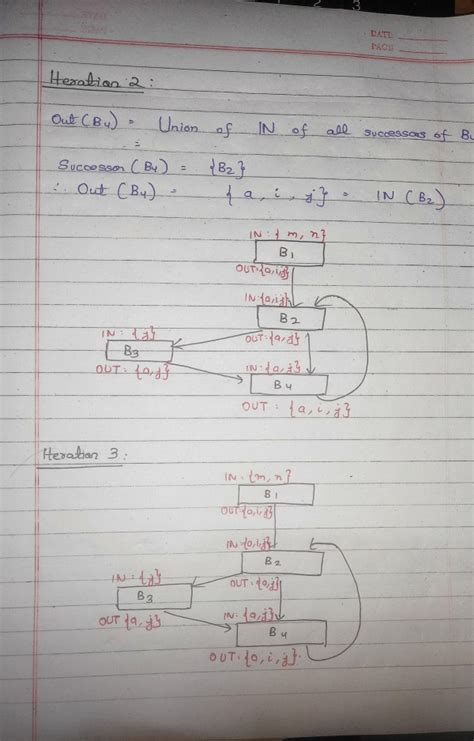 DATE
PAGE
Iteration 2 :
Out (B4) = Union of IN of all successors of B
=
Successor (B4) = {B2}
∴ Out (B4) = { a, i, j} = IN (B2)
IN : { m, n}
B1
OUT:{a,i,j}
IN:{a,i,j}
B2
OUT:{a,j}
IN : {j}
B3
OUT : {a,j}
IN:{a,j}
B4
OUT : {a,i,j}
Iteration 3 :
IN : {m, n}
B1
OUT:{a,i,j}
IN:{a,i,j}
B2
OUT:{a,j}
IN : {j}
B3
OUT {a, j}
IN: {a,j}
B4
OUT: {a, i, j}.